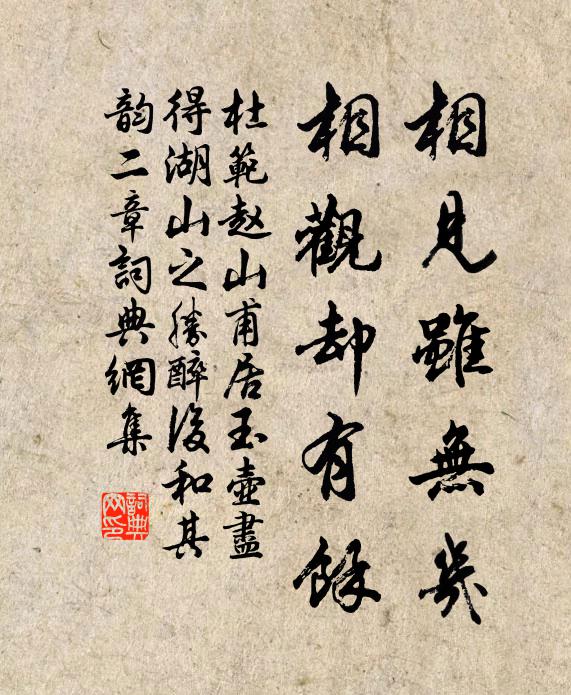 相見雖無幾
相觀却有餘
杜範赵山甫居玉壺盡
得湖山之勝醉後和其
韵二章詞典網集
詞典网印